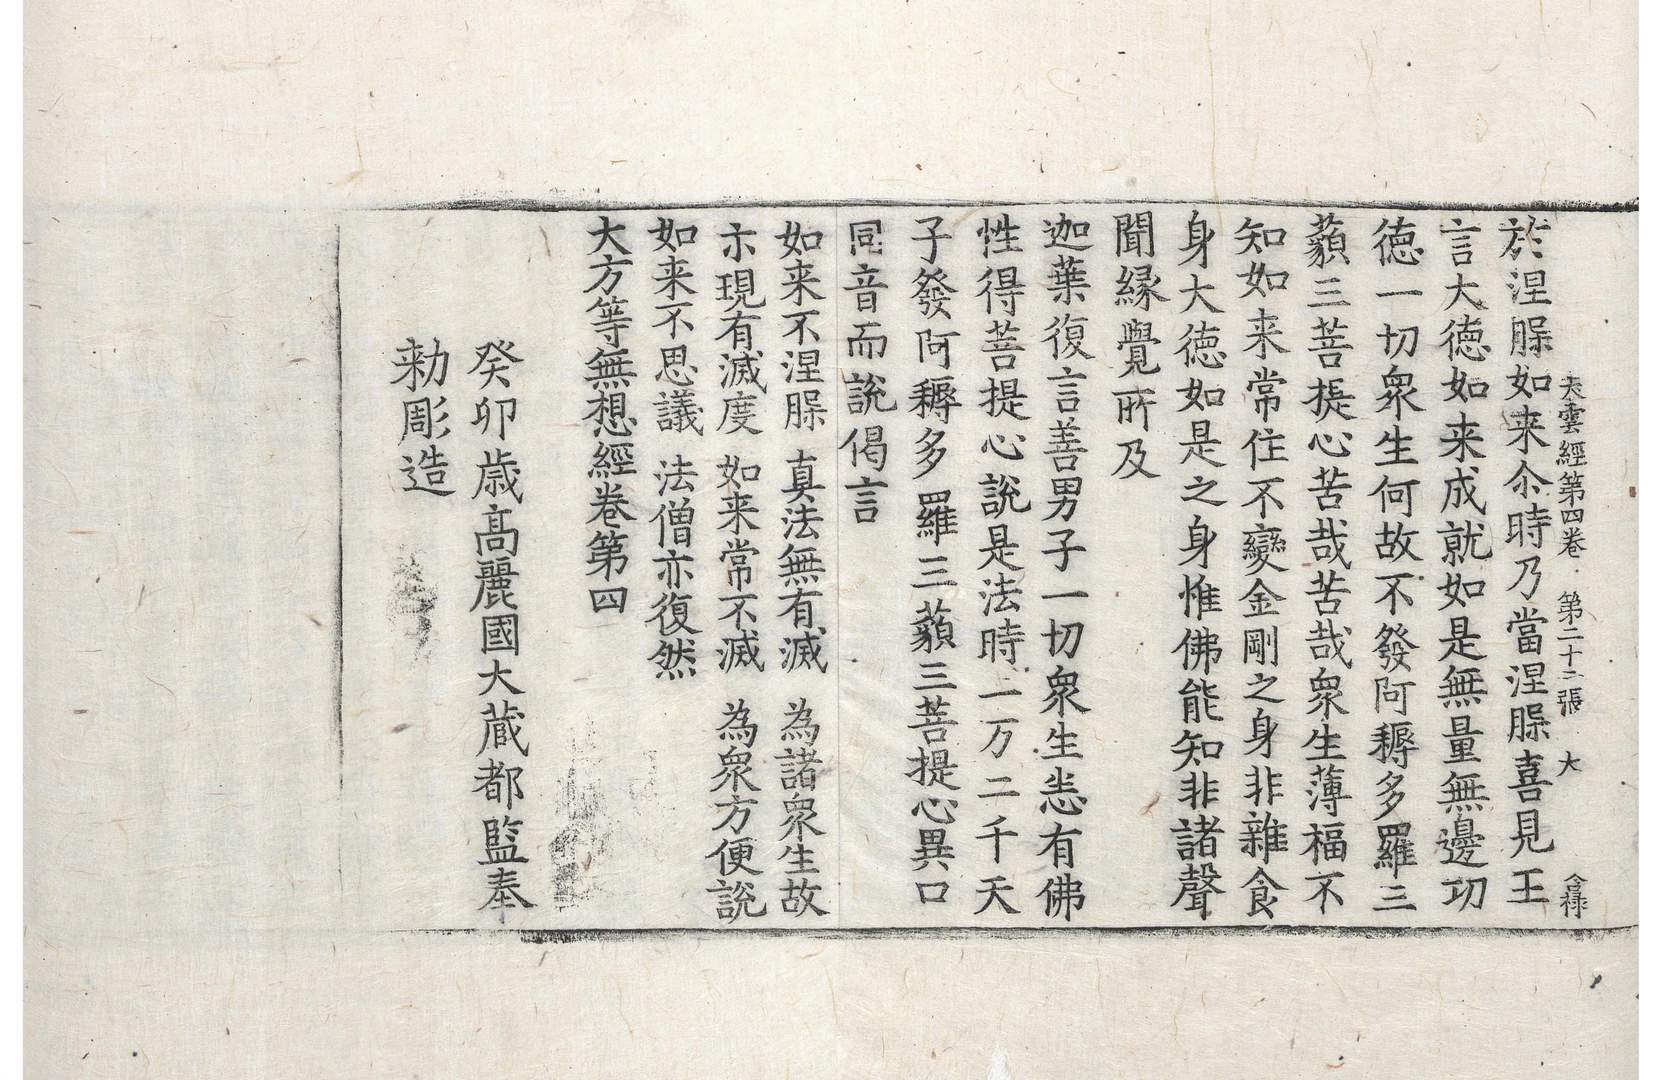 大雲經第四卷 第二十二張 大 含祿
於涅脲如来尒時乃當涅脲喜見王
言大德如来成就如是無量無邊功
德一切衆生何故不發阿耨多羅三
藐三菩提心苦哉苦哉衆生薄福不
知如来常住不變金剛之身非雜食
身大德如是之身惟佛能知非諸聲
聞縁覺所及
迦葉復言善男子一切衆生悉有佛
性得菩提心說是法時一万二千天
子發阿耨多羅三藐三菩提心異口
同音而說偈言
如来不涅脲 真法無有滅 為諸衆生故
示現有滅度 如来常不滅 為衆方便說
如来不思議 法僧亦復然
大方等無想經卷第四
癸卯歳高麗國大藏都監奉
勑彫造